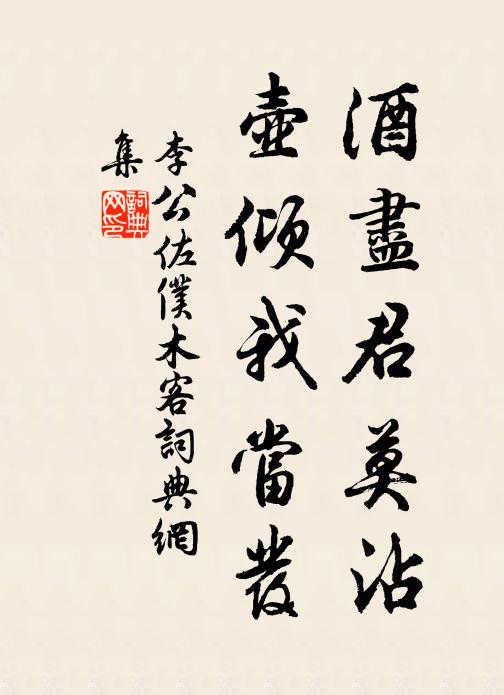 酒盡君莫沽
壺傾我當發
李公佐僕木客詞典網
集
詞典網印